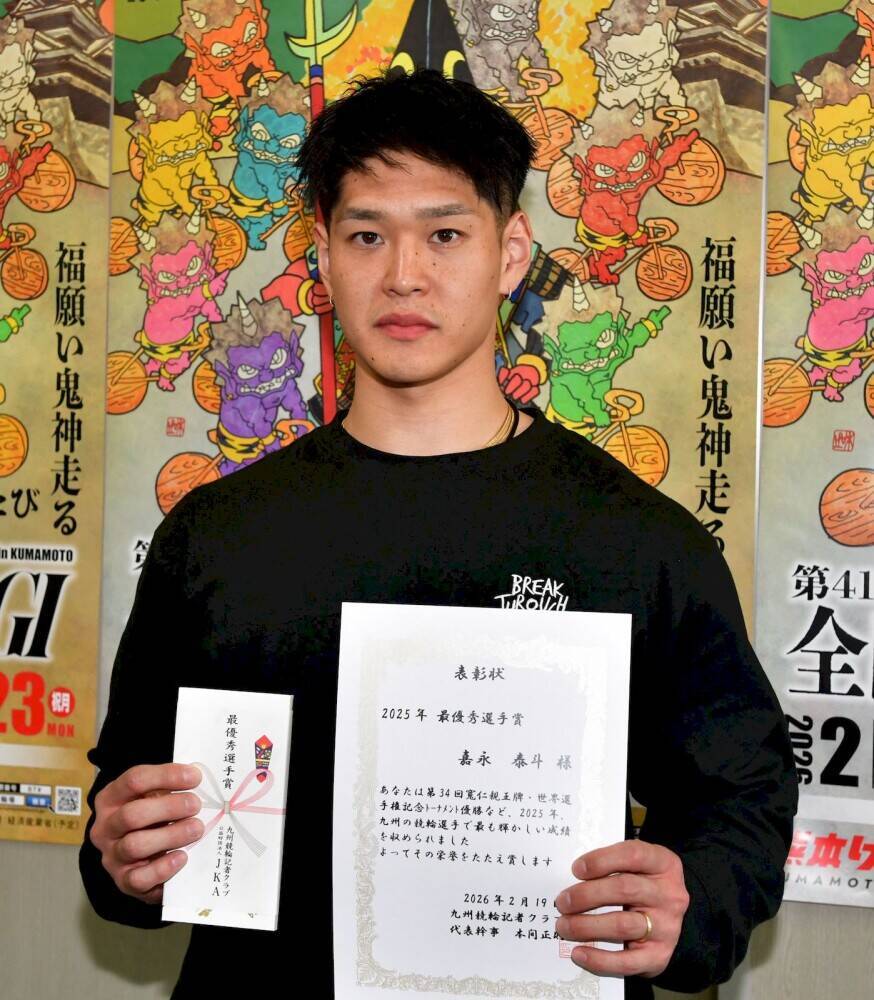 福願い鬼神走る
たび
in KUMAMOTO
GI
23
祝月
MON
経済産業省(予定)
福願い鬼神走る
第41
全
2026
2
熊本け
KUMAMOTO
BREAK
THROUGH
最優秀選手賞
九州競輪記者クラブ
公益財団法人JKA
表彰状
2025年 最優秀選手賞
嘉永 泰斗 様
あなたは第34回寛仁親王牌・世界選
手権記念トーナメント優勝など、2025年、
九州の競輪選手で最も輝かしい成績
を収められました
よってその栄誉をたたえ賞します
2026年2月19
九州競輪記者クラブ
代表幹事 本間正